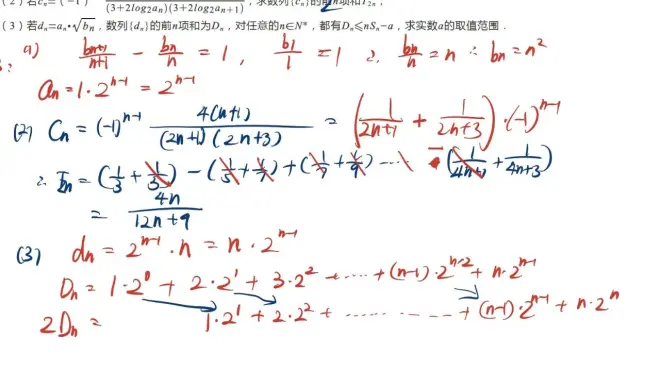 (2) 若cₙ=(-1) (3+2log₂aₙ)(3+2log₂aₙ₊₁) ，求数列{cₙ}的前 项和T₂ₙ；
(3) 若dₙ=aₙ·√bₙ，数列{dₙ}的前n项和为Dₙ，对任意的n∈N*，都有Dₙ≤nSₙ-a，求实数a的取值范围．
a) bₙ₊₁/(n+1) - bₙ/n = 1, b₁/1 = 1 ∴ bₙ/n = n ∴ bₙ = n²
aₙ = 1·2ⁿ⁻¹ = 2ⁿ⁻¹
(2) Cₙ = (-1)ⁿ⁻¹ 4(n+1)/((2n+1)(2n+3)) = (1/(2n+1) + 1/(2n+3))·(-1)ⁿ⁻¹
∴ T₂ₙ = (1/3 + 1/5) - (1/5 + 1/7) + (1/7 + 1/9) ... - (1/(4n+1) + 1/(4n+3))
= 4n/(12n+9)
(3) dₙ = 2ⁿ⁻¹·n = n·2ⁿ⁻¹
Dₙ = 1·2⁰ + 2·2¹ + 3·2² + ····· + (n-1)·2ⁿ⁻² + n·2ⁿ⁻¹
2Dₙ = 1·2¹ + 2·2² + ··········· + (n-1)·2ⁿ⁻¹ + n·2ⁿ